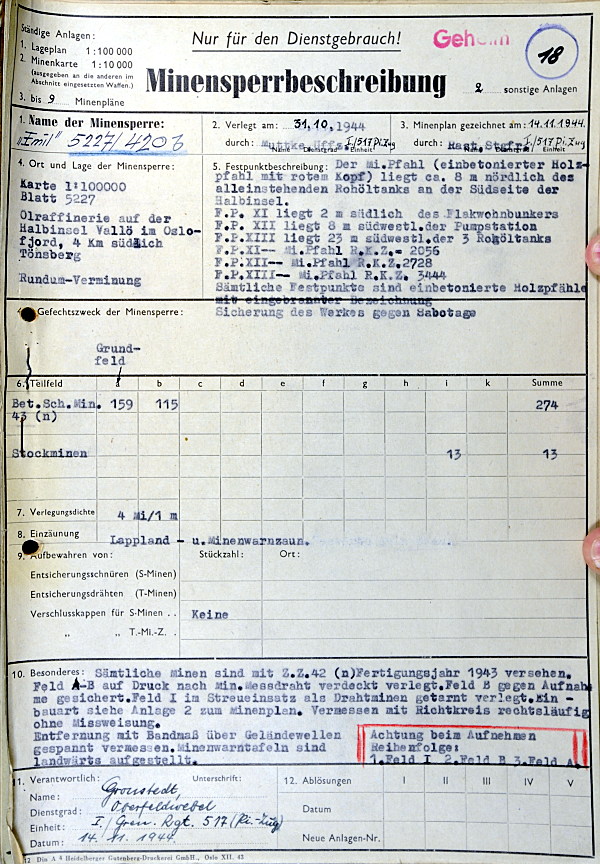 Ständige Anlagen:
1. Lageplan 1:100 000
2. Minenkarte 1:10 000
(ausgegeben an die anderen im
Abschnitt eingesetzten Waffen.)
3. bis 9 Minenpläne
Nur für den Dienstgebrauch!
Geheim
18
Minensperrbeschreibung
2 sonstige Anlagen
1. Name der Minensperre:
"Emil" 5227/4206
2. Verlegt am: 31,10,1944
durch: Muttke Uffz. I/517 Pi.Zug
Name Dienstgrad Einheit
3. Minenplan gezeichnet am: 14.11.1944.
durch: I/517 Pi.Zug
Name Dienstgrad Einheit
4. Ort und Lage der Minensperre:
Karte 1:100000
Blatt 5227
Olraffinerie auf der
Halbinsel Vallö im Oslo-
fjord, 4 Km südlich
Tönsberg
Rundum-Verminung
5. Festpunktbeschreibung: Der Mi.Pfahl (einbetonierter Holz-
pfahl mit rotem Kopf) liegt ca. 8 m nördlich des
alleinstehenden Rohöltanks an der Südseite der
Halbinsel.
F.P. XI liegt 2 m südlich des Flakwohnbunkers
F.P. XII liegt 8 m südwestl.der Pumpstation
F.P.XIII liegt 23 m südwestl.der 3 Rohöltanks
F.P.XI-- Mi.Pfahl R.K.Z.- 2056
F.P.XII-- Mi.Pfahl R.K.Z.2728
F.P.XIII-- Mi.Pfahl R.K.Z. 3444
Sämtliche Festpunkte sind einbetonierte Holzpfähle
mit eingebrannter Bezeichnung
Gefechtszweck der Minensperre: Sicherung des Werkes gegen Sabotage
Grund-
feld
6. Teilfeld a b c d e f g h i k Summe
Bet.Sch.Min. 159 115 274
43 (n)
Stockminen 13 13
7. Verlegungsdichte 4 Mi/1 m
8. Einzäunung Lappland - u.Minenwarnzaun.
9. Aufbewahren von: Stückzahl: Ort:
Entsicherungsschnüren (S-Minen)
Entsicherungsdrähten (T-Minen)
Verschlusskappen für S-Minen . . Keine
" " T.-Mi.-Z. .
10. Besonderes: Sämtliche Minen sind mit Z.Z.42 (n)Fertigungsjahr 1943 versehen.
Feld A-B auf Druck nach Min.Messdraht verdeckt verlegt.Feld B gegen Aufnah
me gesichert.Feld I im Streueinsatz als Drahtminen getarnt verlegt.Ein -
bauart siehe Anlage 2 zum Minenplan. Vermessen mit Richtkreis rechtsläufig
ohne Missweisung.
Entfernung mit Bandmaß über Geländewellen
gespannt vermessen.Minenwarntafeln sind
landwärts aufgestellt.
Achtung beim Aufnehmen
Reihenfolge:
1.Feld I 2.Feld B 3.Feld A.
11. Verantwortlich: Unterschrift:
Name: Gronstedt,
Dienstgrad: Oberfeldwebel
Einheit: I./Gren. Rgt. 517 (Pi-Zug)
Datum: 14. 11. 1944.
12. Ablösungen I II III IV V
Datum
Neue Anlagen-Nr.
12 Din A 4 Heidelberger Gutenberg-Druckerei GmbH., Oslo XII. 43